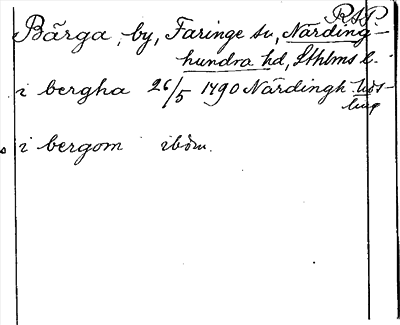 RSP
Bärga, by, Faringe sn, Närding-
hundra hd, Sthlms l.
i bergha 26/5 1490 Närdingh
i bergom ibdm.